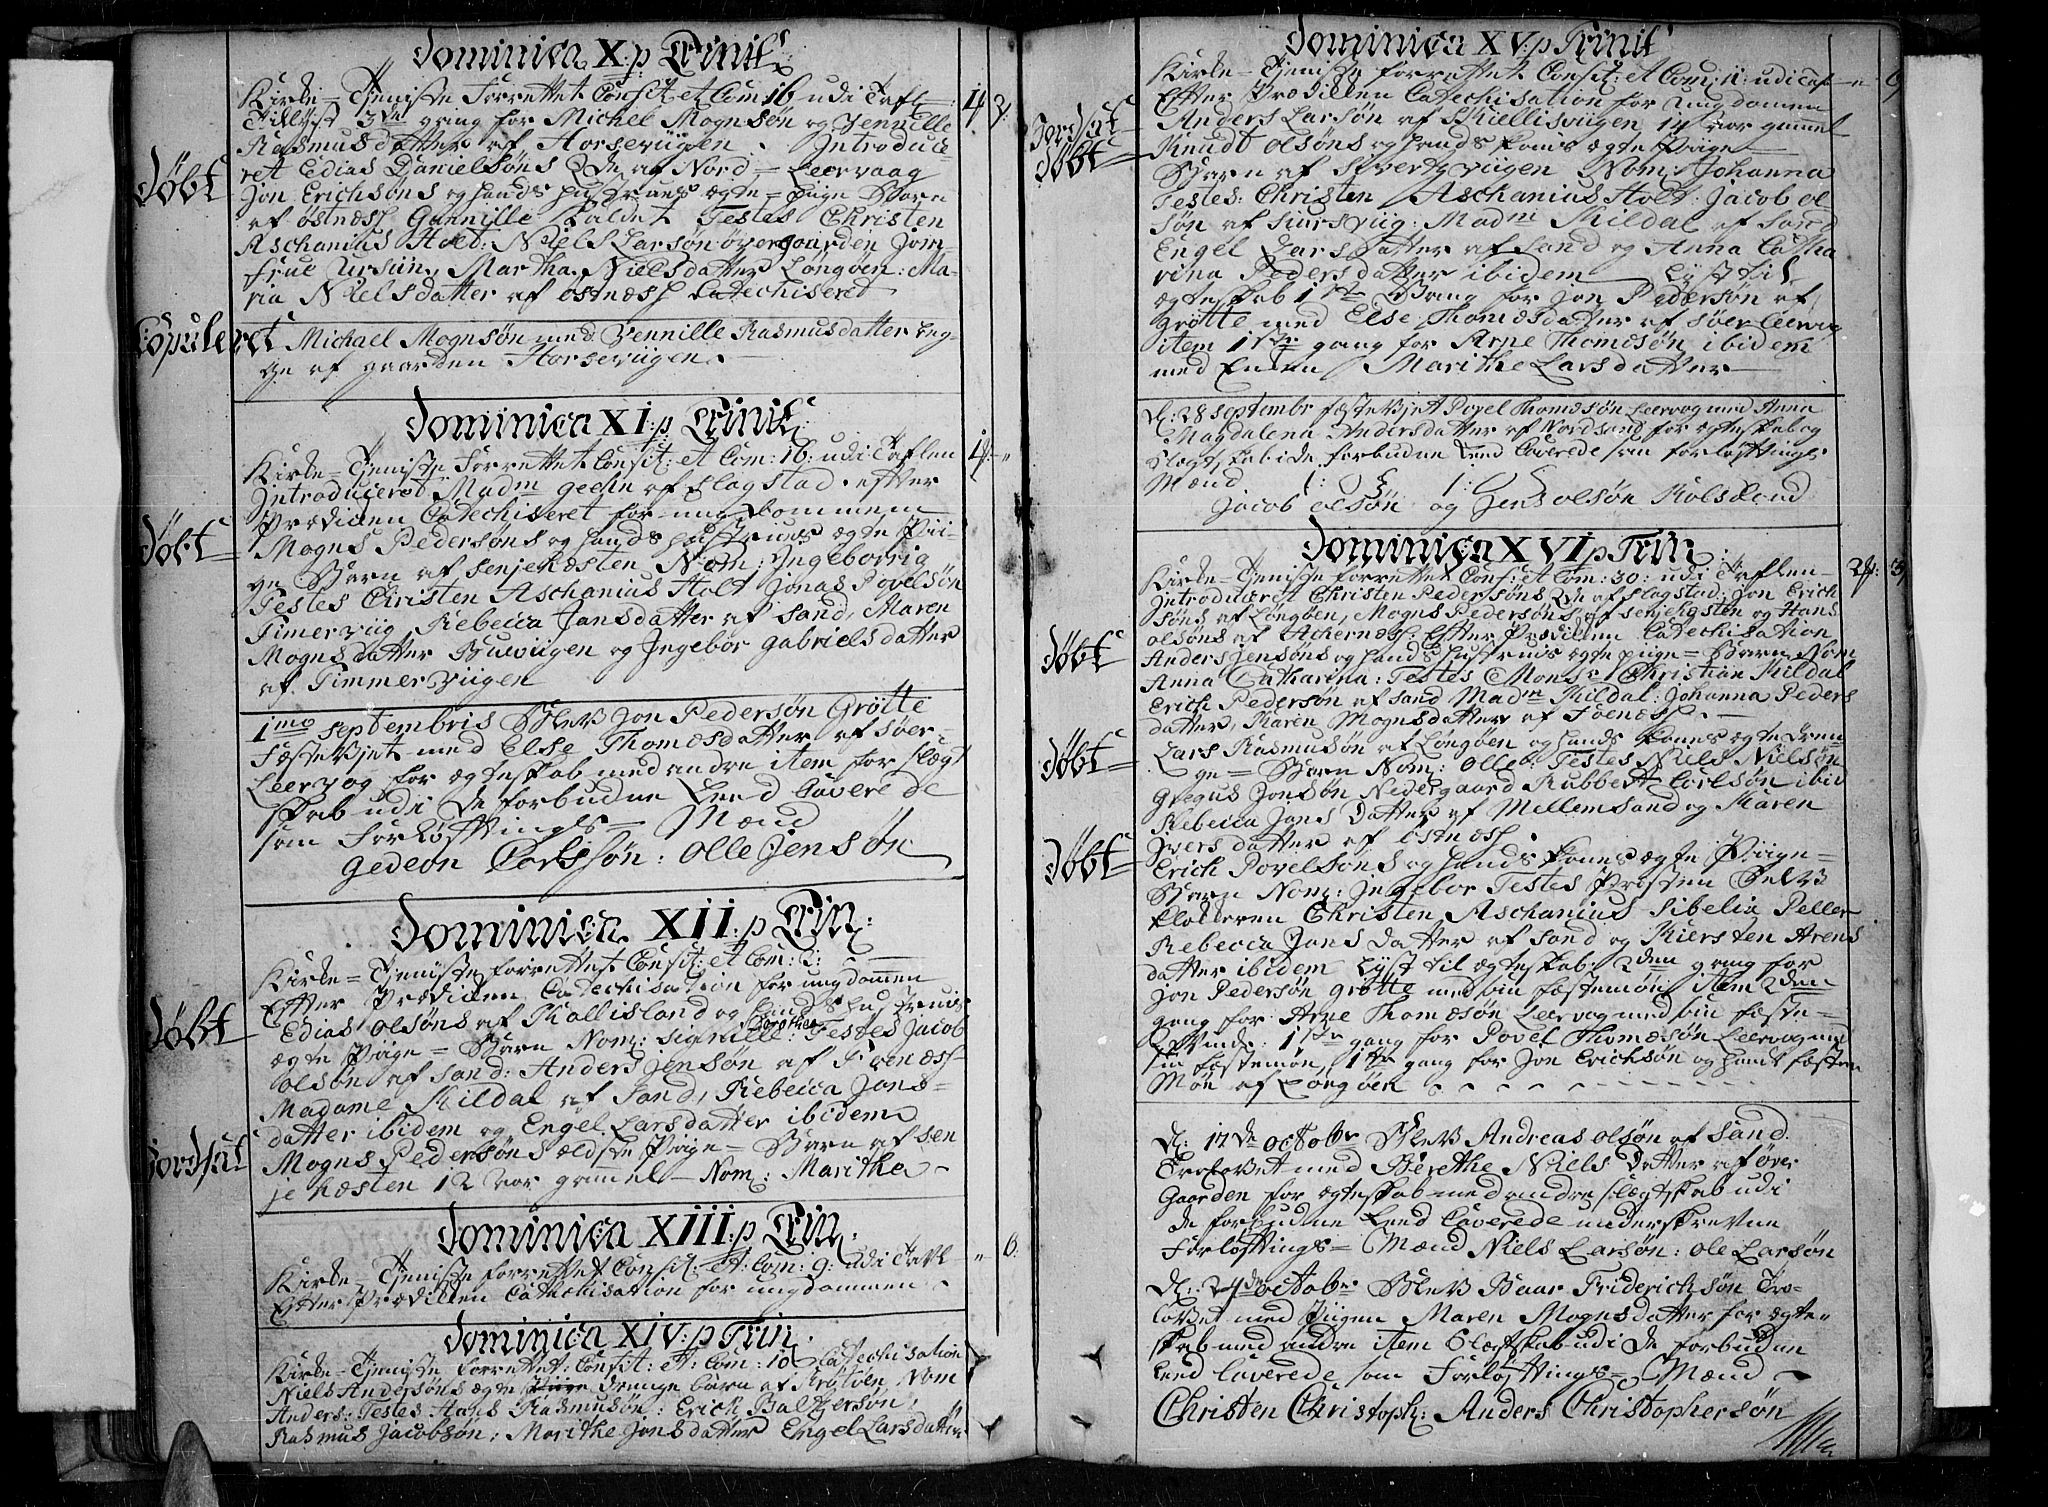 Dominica X: p Trinit:
Kirke-Tjeniste Forrettet Consit: et Com: 16 udi Tafl:
Tillyst 3die gang for Michel Mognsøn og Pennille
Rasmusdatter af Horseviigen. Introduce-
ret Edias Danielsøns af Nord-Leervaag
Døbt
Jon Erichsøns og hands hustrues ægte Piige Barn
af Østnæss Gunnille kaldet Testes Christen
Aschanius Holt: Niels Larsøn øvergaarden Jom
frue Ursiin, Martha Nielsdatter Longøen: Ma-
ria Nielsdatter af Østnæss Catechiseret
Copuleret
Michael Mognsøn med Pennille Rasmusdatter beg-
ge af gaarden Horseviigen.
Dominica XI: p Trinit:
Kirke-Tjeniste Forrettet Consit: et Com: 16: udi Taflen
Introduceret Madm Geche af Slagstad. efter
Prædiken Catechiseret for ungdommen
Døbt
Mogns Pedersøns og hands hustrues ægte Pii-
ge Barn af Senjehesten Nom: Ingeborrig
Testes Christen Aschanius Holt Jonas Povelsøn
Timerviig Rebecca Jonsdatter af Sand, Maren
Mognsdatter Buviigen og Ingebor Gabrielsdatter
af Timmerviigen
1mo Septembris Blev Jon Pedersøn Grøtte
Fæstevjet med Else Thomæsdatter af Søer-
Leervog for ægteskab med andre item for slægt
skab udi De forbudne Leed Cavere de
som Forløftnings-Mænd
Gedeon Carlsøn: Olle Jensøn
Dominica XII: p Trin:
Kirke-Tjeniste forrettet Consit: et Com: 2:
Efter Prædiken Catechisation for ungdommen
Døbt
Edias Olsøns af Kallisland og hands hustrues
ægte Piige-Barn Nom: Signille Dorothea: Testes Jacob
Olsøn af Sand: Anders Jensøn af Foenæss
Madame Kildal af Sand, Rebecca Jons-
datter ibidem og Engel Larsdatter ibidem
Jordsat
Mogns Pedersøns ældste Piige-Barn af Sen
jehæsten 12 aar gammel Nom: Maritha
Dominica XIII: p Trin:
Kirke-Tjeniste forrettet Consit: et: Com: 9: udi Tavl- " 6
Efter Prædiken Catechisation for ungdommen
Dominica XIV: p Trin:
Kirke-Tjeniste forrettet: Consit: et: Com: 10 Catechisation
Niels Andersøns ægte drenge barn af Krøtøen Nom
Anders: Testes Hans Rasmusøn: Erich Baltzersøn,
Rasmus Jacobsøn, Marithe Jonsdatter Engel Larsdatter
Dominica XV: p Trinit
Kirke-Tjeniste forrettet Consit: et Com: 11: udi Taf
Efter Prædiken Catechisation for ungdommen
Jordsat
Anders Larsøn af Kielliswiigen 14 aar gammel
Døbt
Knudt Olsøns og hands Kones ægte Piige
Barn af Sivertzviigen Nom: Johanna
Testes: Christen Aschanius Holt: Jacob Ol
søn af Siursviig: Madm Kildal af Sand
Engel Larsdatter af Sand og Anna Catha
rina Pedersdatter ibidem Lyst til
ægteskab 1ste Gang for Jon Pedersøn af
Grøtte med Else Thomæsdatter af Søer Leervig
item 1ste gang for Arne Thomesøn ibidem
med Enken Marithe Larsdatter
d: 28 Septembr fæstevjet Povel Thomesøn Leervog med Anna
Magdalena Andersdatter af Nordsand for ægteskab og
Slegtskab i de forbudne Leed Caverede som forløftnings
Mænd
Jacob Olsøn og Jens Olsøn Kolsland
Dominica XVI p Trin:
Kirke-Tjeniste forrettet Consi: et Com: 30: udi Taflen
Introduceret Christen Pedersøns af Slagstad: Jon Erich
søns af Longøen, Mogns Pedersøns af Senjehesten og Hans
Olsøns af Achernæss. Efter Prædiken Catechisation
Døbt
Anders Jensøns og hands hustrues ægte piige-Barn Nom
Anna Catharina: Testes Monsr Christian Kildal
Erich Pedersøn af Sand Madm Kildal: Johanna Peders
datter, Maren Mognsdatter af Foenæss.
Døbt
Lars Rasmusøn af Longøen og hands Kones ægte Dren
ge-Barn Nom: Olle: Testes Niels Nielsøn
Gregus Jonsøn Nedergaard Rubbert Carlsøn ibid
Rebecca Jons Datter af Mellemsand og Maren
Ivers datter af Østnæss.
Døbt
Erich Povelsøns og hands Kones ægte Piige-
Barn Nom: Ingebor Testes Præsten Selv
Klokkeren Christen Aschanius Sibelia Peller
Rebecca Jons Datter af Sand og Kiersten Arens
datter ibidem Lyst til ægteskab: 2den gang for
Jon Pedersøn Grøtte med sin fæstemøe item 2den
gang for Arne Thomesøn Leervog med sin fæste-
Qvinde: 1ste gang for Povel Thomesøn Leervog med
sin Fæstemøe, 1ste gang for Jon Erichsøn og hands fæste
Møe af Longøen
d: 17de Octobr Blev Andreas Olsøn af Sand
Trolovet med Berethe Niels Datter af Øver
Gaarden for ægteskab med andre slægtskab udi
de forbudne Leed Caverede underskrevne
Forløftnings-Mænd Niels Larsøn: Ole Larsøn
d: 24de Octobr Blev Baar Friderichsøn Tro-
lovet med Piigen Maren Mognsdatter for ægte-
skab med andre item Slegtskab udi de forbudne
Leed Caverede som Forløftnings-Mænd
Christen Christoph: Anders Christophersøn